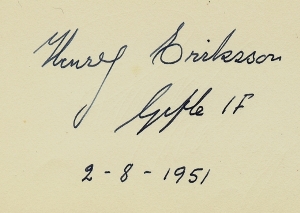 Henry Eriksson
Gefle IF
2-8-1951